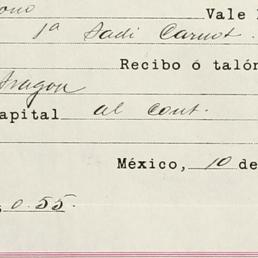 ono Vale
1ª Sadi Carnot.
Recibo ó talón
Aragon
apital al cont.
México, 10 de
0.55.